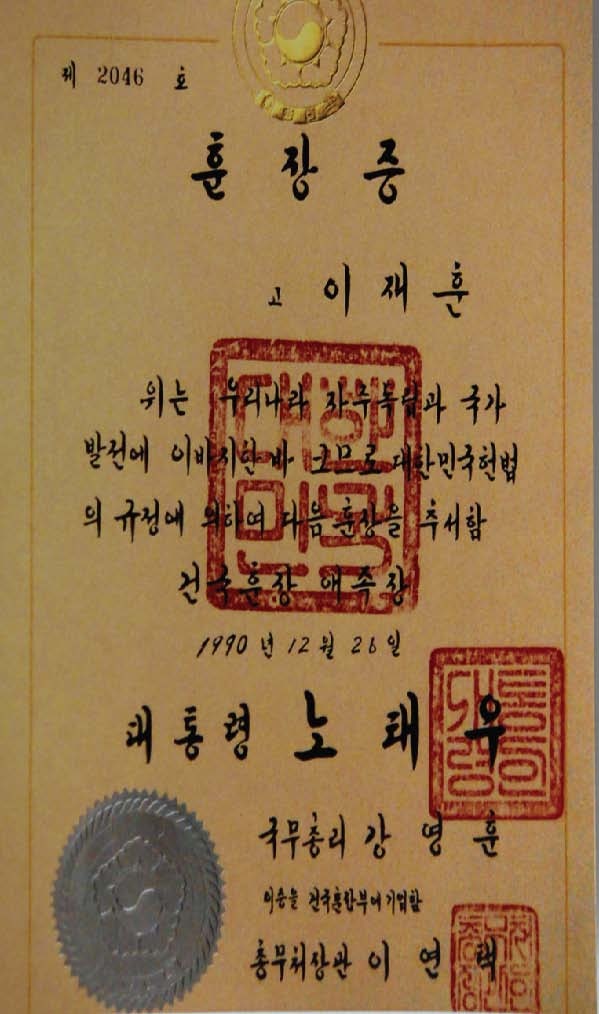 제 2046 호
훈장증
고 이재훈
위는 우리나라 자주독립과 국가
발전에 이바지한바 크므로 대한민국헌법
의 규정에 의하여 다음 훈장을 추서함
건국훈장 애족장
1990년 12월 26일
대통령 노태우
국무총리 강영훈
이증을 건국훈장부에 기입함
총무처장관 이연택